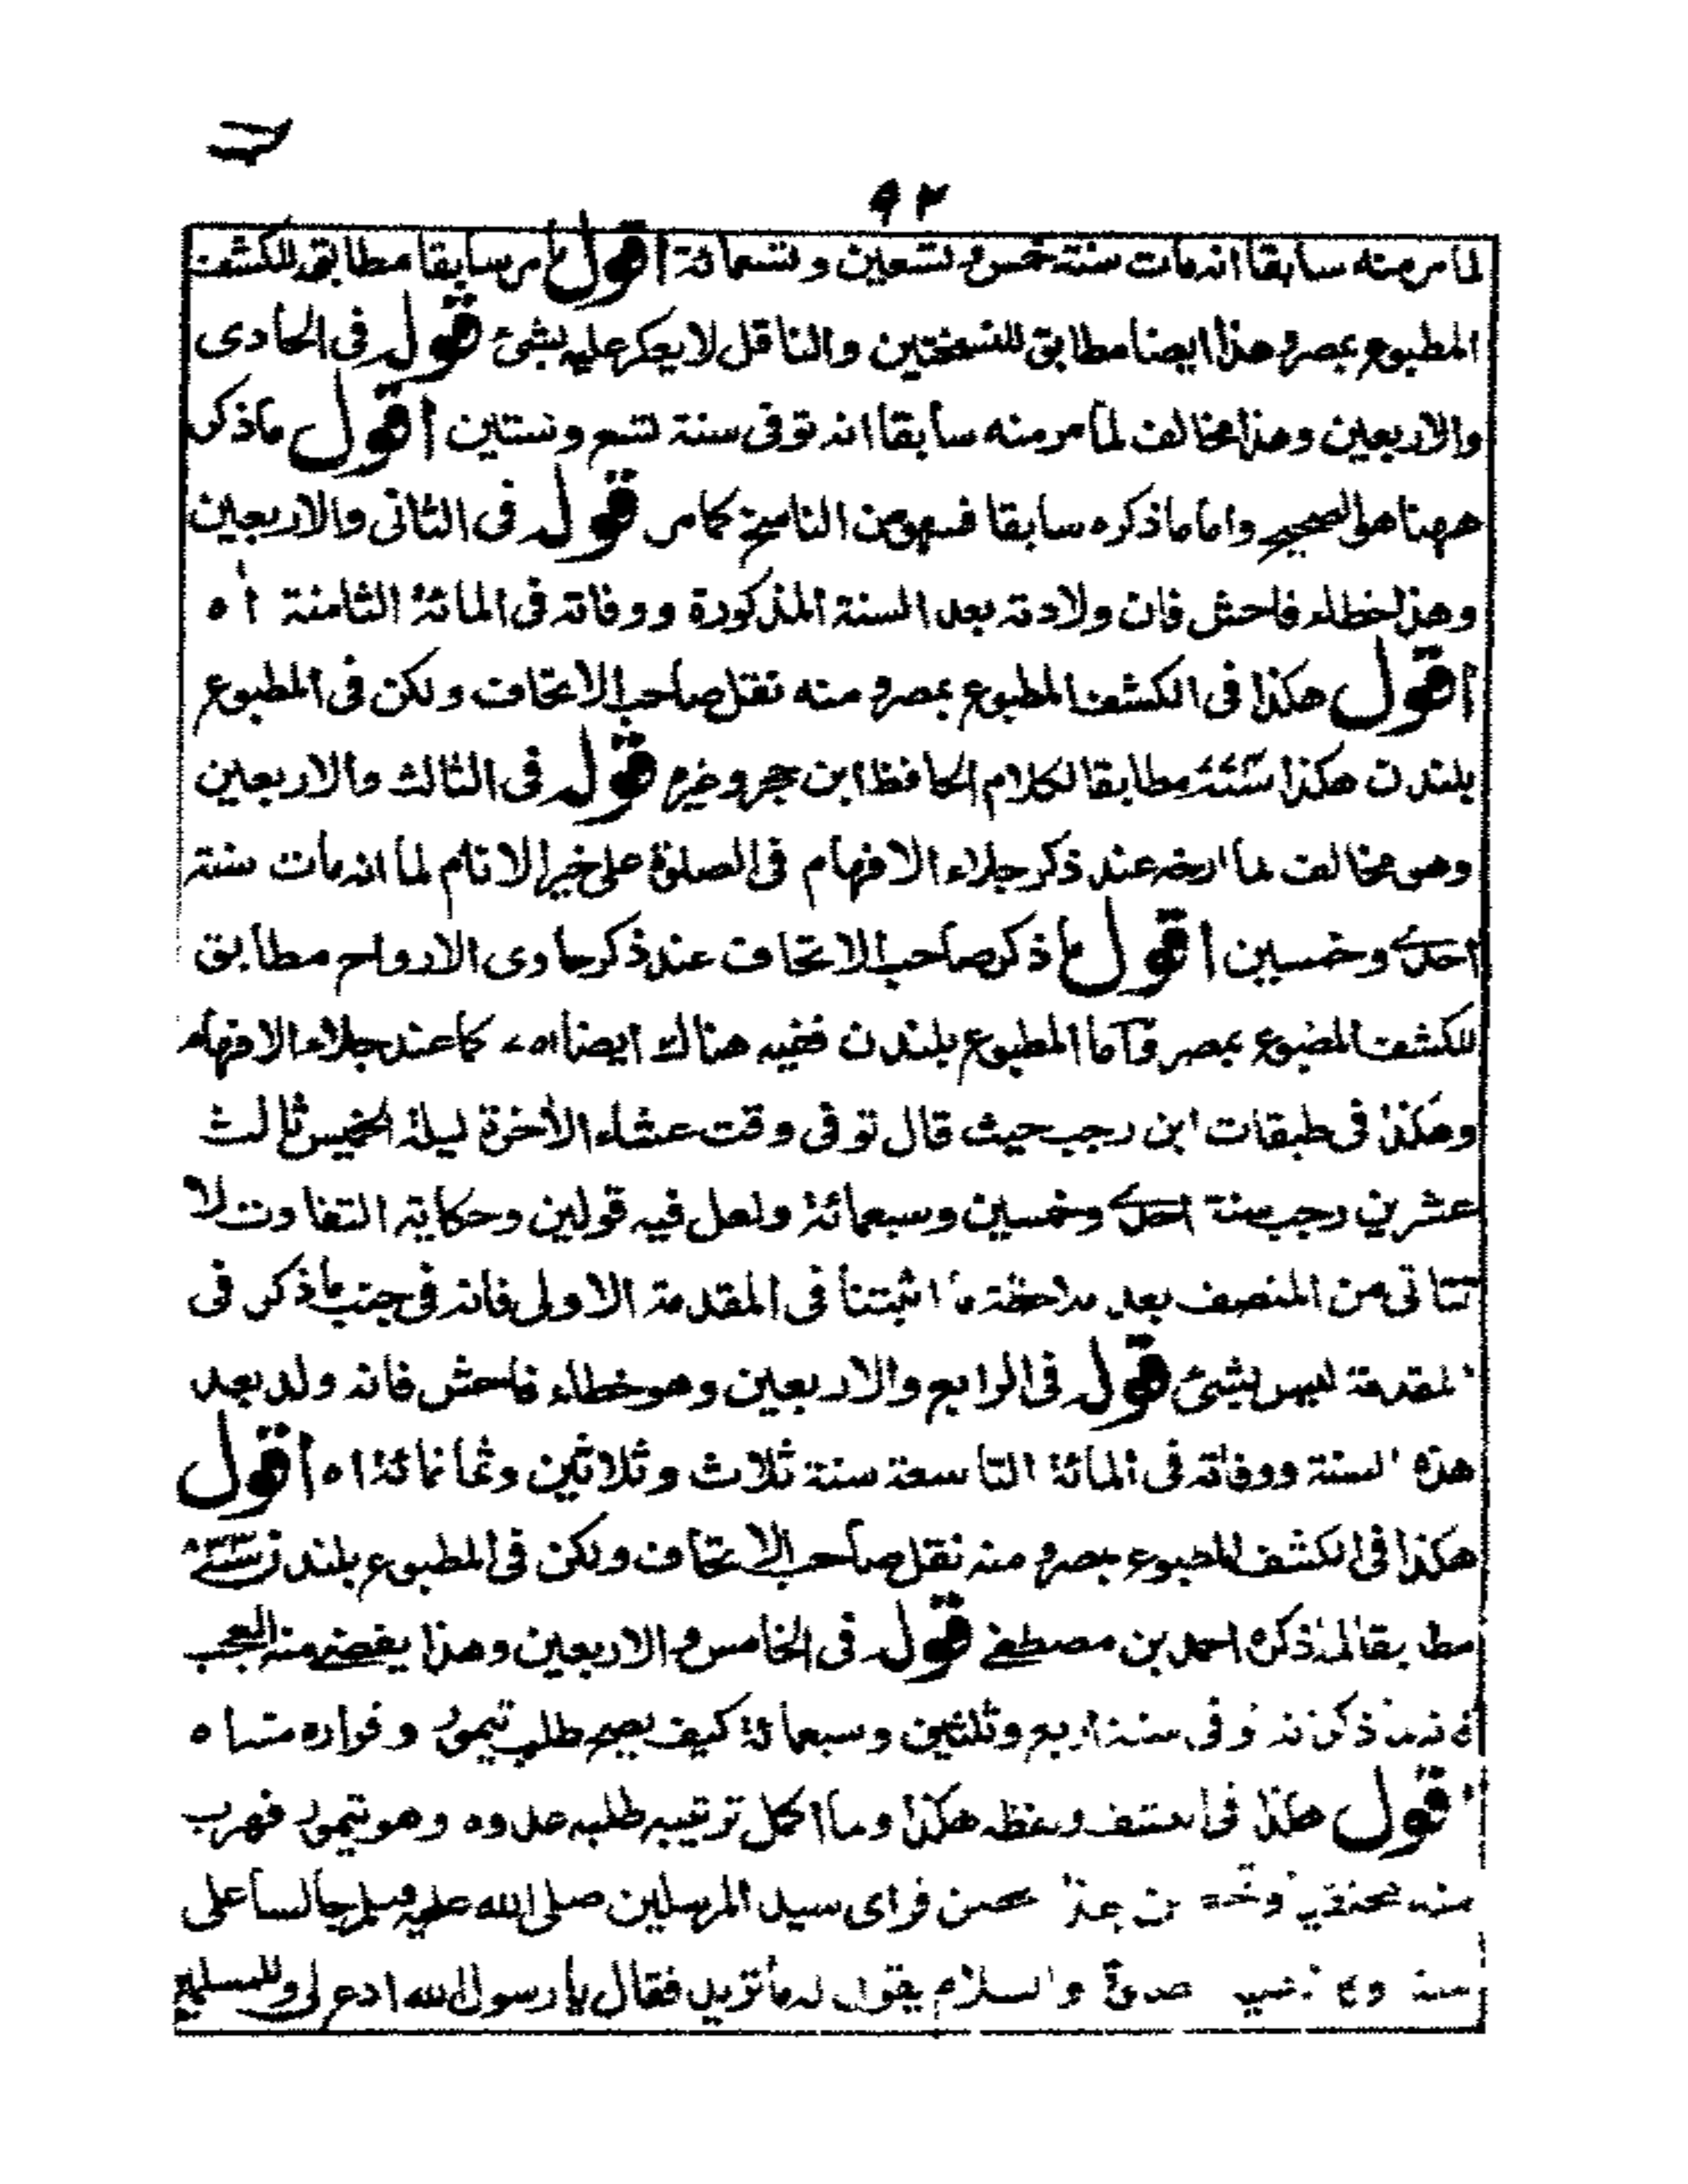 ٩٢
لما مر منه سابقا انه مات سنة خمس و تسعين و تسعمائة اقول ما مر سابقا مطابق للكشف
المطبوع بمصر و هذا ايضا مطابق للنسختين والناقل لا يعكر عليه بشئ قوله فى الحادى
والاربعين وهذا مخالف لما مر منه سابقا انه توفى سنة تسع وستين اقول ما ذكر
ههنا هو الصحيح واما ما ذكره سابقا فسهو من الناسخ كما مر قوله فى الثانى والاربعين
وهذا خطاء فاحش فان ولادته بعد السنة المذكورة ووفاته فى المائة الثامنة اه
اقول هكذا فى الكشف المطبوع بمصر و منه نقل صاحب الاتحاف ولكن فى المطبوع
بلندن هكذا مطابقا لكلام الحافظ ابن حجر وغيره قوله فى الثالث والاربعين
وهو مخالف لما ارخه عند ذكر جلاء الافهام فى الصلوة على خير الانام لما انه مات سنة
احدى وخمسين اقول ما ذكر صاحب الاتحاف عند ذكر حاوى الارواح مطابق
للكشف المطبوع بمصر واما المطبوع بلندن ففيه هناك ايضا ٧٥١ كما عند جلاء الافهام
وهكذا فى طبقات ابن رجب حيث قال توفى وقت عشاء الأخرة ليلة الخميس ثالث
عشرين رجب سنة احدى وخمسين وسبعمائة ولعل فيه قولين وحكاية التفاوت لا
تتاتى من المنصف بعد ملاحظة ما اثبتنا فى المقدمة الاولى فانه فى جنب ما ذكر فى
المقدمة ليس بشئ قوله فى الرابع والاربعين وهو خطاء فاحش فانه ولد بعد
هذه السنة ووفاته فى المائة التاسعة سنة ثلاث وثلاثين وثمانمائة اه اقول
هكذا فى الكشف المطبوع بمصر و منه نقل صاحب الاتحاف ولكن فى المطبوع بلندن
مطابقا لما ذكره احمد بن مصطفى قوله فى الخامس والاربعين وهذا يفضى منه العجب
سنة اربع وثلثين وسبعمائة كيف يصح طلب تيمور وفراره منه اه
اقول هكذا فى الكشف ولفظه هكذا وما اكمل ترتيبه طلبه عدوه وهو تيمور فهرب
منه مختفيا حصن فراى سيد المرسلين صلى الله عليه وسلم جالسا على
والسلام يقول له ما تريد فقال يا رسول الله ادع لى وللمسلمين